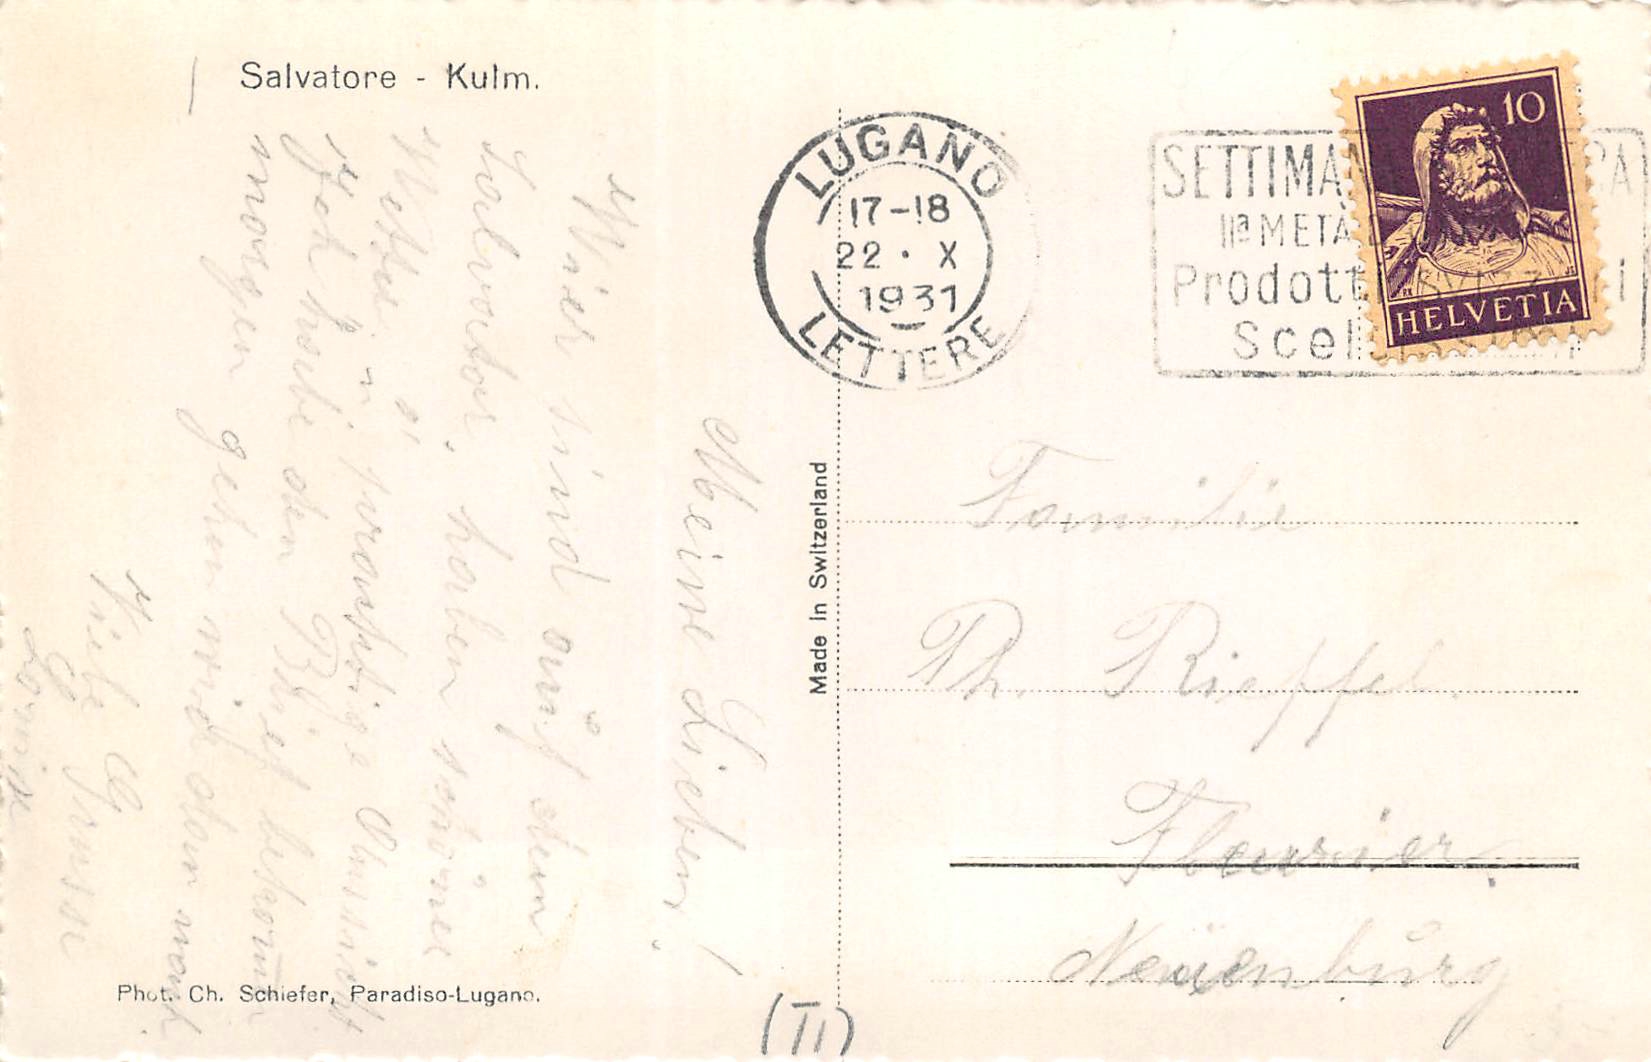 Salvatore - Kulm.
Meine Lieben!
Wier sind auf dem
Salvator, haben schöner
Wetter ü
n prachtige Aussicht
Ich habe den Brief bekomm
morgen gehen wir dan nach
Viele Grüsse
Phot. Ch. Schiefer, Paradiso-Lugano.
Made in Switzerland
(II)
LUGANO
17-18
22 · X
1931
LETTERE
SETTIMA
IIª METÀ
Prodotti
Scel
10
HELVETIA
Familie
Th. Rieffel.
Fleurier.
Neuenbürg